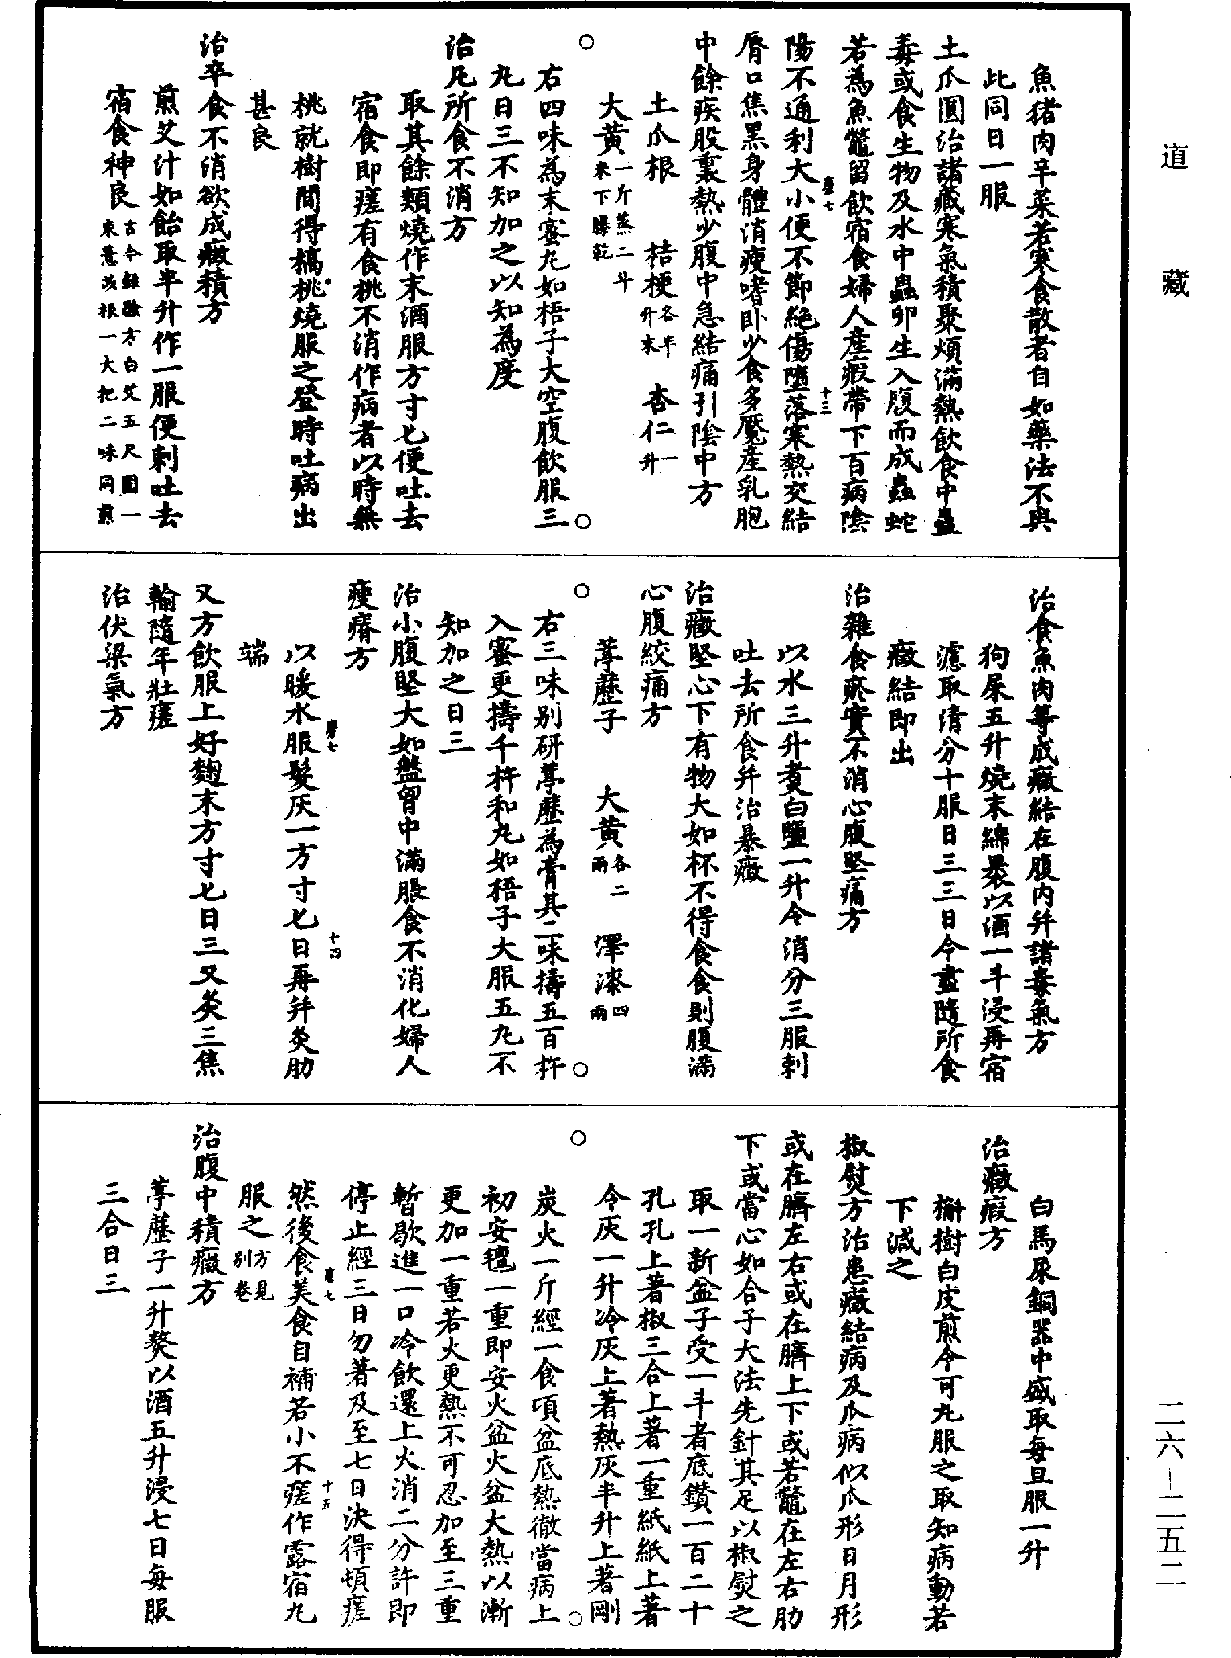 道藏
二六-二五二
魚猪肉辛菜若寒食散者自如藥法不與
此同日一服
土瓜圓治諸藏寒氣積聚煩滿熱飲食中蠱
毒或食生物及水中蟲卵生入腹而成蟲蛇
若為魚鼈留飲宿食婦人產瘕帶下百病陰
陽不通利大小便不節絕傷墮落寒熱交結
唇口焦黑身體消瘦嗜卧少食多魘產乳胞
中餘疾股裏熱少腹中急結痛引陰中方
土瓜根 桔梗各半升末 杏仁一升
大黃一斤蒸二斗米下曝乾
右四味為末蜜丸如梧子大空腹飲服三
丸日三不知加之以知為度
治凡所食不消方
取其餘類燒作末酒服方寸匕便吐去
宿食即瘥有食桃不消作病者以時無
桃就樹間得槁桃燒服之登時吐病出
甚良
治卒食不消欲成癥積方
煎艾汁如飴取半升作一服便刺吐去
宿食神良古今錄驗方白艾五尺圍一束薏苡根一大把二味同煎
治食魚肉等成癥結在腹內并諸毒氣方
狗屎五升燒末綿裹以酒一斗浸再宿
濾取清分十服日三三日令盡隨所食
癥結即出
治雜食瘀實不消心腹堅痛方
以水三升煮白鹽一升令消分三服刺
吐去所食并治暴癥
治癥堅心下有物大如杯不得食食則腹滿
心腹絞痛方
葶藶子 大黃各二兩 澤漆四兩
右三味別研葶藶為膏其二味擣五百杵
入蜜更擣千杵和丸如梧子大服五丸不
知加之日三
治小腹堅大如盤胷中滿脹食不消化婦人
瘦瘠方
以暖水服髮灰一方寸匕日再并灸肋
端
又方飲服上好麴末方寸匕日三又灸三焦
輸隨年壯瘥
治伏梁氣方
白馬尿銅器中盛取每旦服一升
治癥瘕方
槲樹白皮煎令可丸服之取知病動若
下減之
椒熨方治患癥結病及爪病似爪形日月形
或在臍左右或在臍上下或若鼈在左右肋
下或當心如合子大法先針其足以椒熨之
取一新盆子受一斗者底鑽一百二十
孔孔上著椒三合上著一重紙紙上著
令灰一升冷灰上著熱灰半升上著剛
炭火一斤經一食頃盆底熱徹當病上
初安氊一重即安火盆火盆大熱以漸
更加一重若火更熱不可忍加至三重
暫歇進一口冷飲還上火消二分許即
停止經三日勿著及至七日決得頓瘥
然後食美食自補若小不瘥作露宿丸
服之方見別卷
治腹中積癥方
葶藶子一升熬以酒五升浸七日每服
三合日三